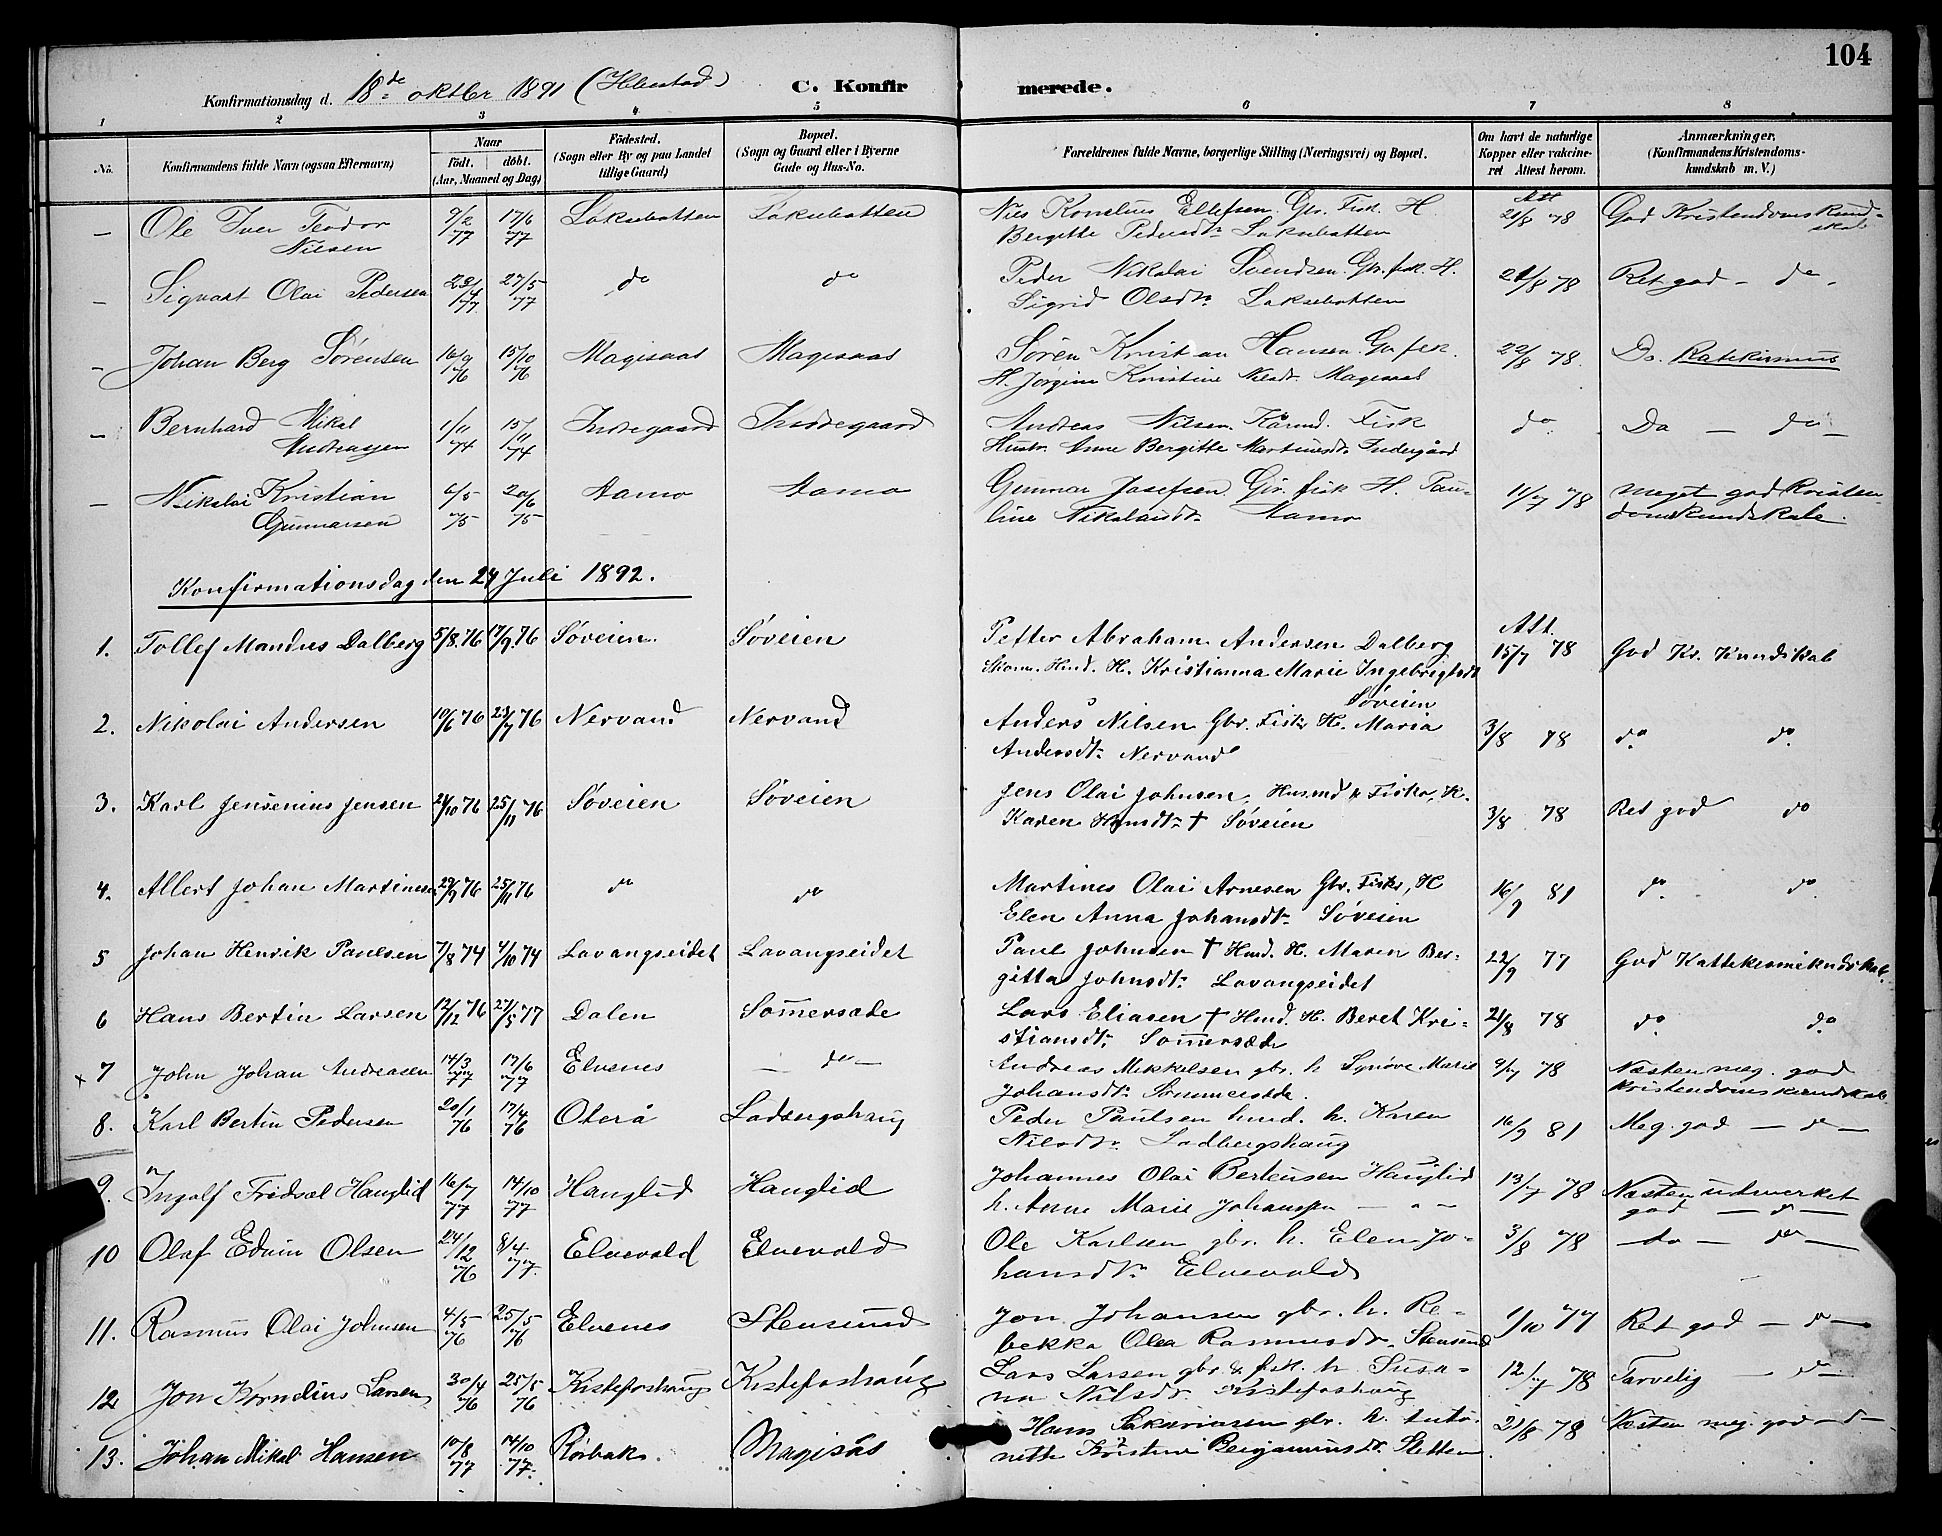 104
Konfirmationsdag d. 18de oktbr 1891 (Ibbestad) C. Konfirmerede.
1 2 3 4 5 6 7 8
No. Konfirmandens fulde Navn (ogsaa Efternavn) Naar födt. döbt. (Aar, Maaned og Dag) Födested. (Sogn eller By og paa Landet tillige Gaard) Bopæl. (Sogn og Gaard eller i Byerne Gade og Hus-No. Forældrenes fulde Navne, borgerlige Stilling (Næringsvei) og Bopæl. Om havt de naturlige Kopper eller vakcineret Attest herom. Anmærkninger. (Konfirmandens Kristendomskundskab m. V.)
— Ole Iver Teodor 9/2 77 17/6 77 Laksebotten Laksebotten Nils Kornelius Ellefsen Gbr. Fisk. H. Att 21/8 78 God Kristendomskund-
Nilsen Bergitte Pedersdtr Laksebotten skab
— Sigvart Olai Pedersen 77 27/5 77 do do Peder Nikolai Svendsen Gbr. fisk. H. 21/8 78 Ret god - do -
Sigrid Olsdtr Laksebotten
— Johan Berg Sörensen 16/9 76 15/10 76 Magisaas Magisaas Sören Kristian Hansen Gbr fisk. 22/8 78 Do. Katekismus
H. Jörgine Kristine Nilsdtr. Magesaas
— Bernhard Mikal 1/11 74 15/11 74 Indregaard Indregaard Andreas Nilsen Kårmd. Fisk do Do — do —
Andreassen Hustr. Anne Bergitte Martinusdtr Indergård
— Nikolai Kristian 6/5 75 20/6 75 Aamo Aamo Gunnar Josefsen Gbr. fisk H. Pau- 11/7 78 meget god Kristen-
Gunnarsen line Nikolaisdtr Aamo domskundskab.
Konfirmationsdag den 24 Juli 1892.
1. Tollef Mandus Dalberg 5/8.76 17/9.76 Söveien. Söveien Petter Abraham Andersen Dalberg Att. 15/7 78 God Kr. Kundskab
Skom. Hmd. H. Kristianna Marie Ingebrigtsdt
Söveien
2. Nikolai Andersen 10/6 76 23/7 76 Nervand Nervand Anders Nilsen Gbr. Fisker H. Maria 3/8 78 do do
Andersdtr Nervand
3. Karl Jensenius Jensen 24/10 76 25/11 76 Söveien Söveien Jens Olai Johnsen, Husmd & Fisker, H. 3/8 78 Ret god do
Karen Hansdtr † Söveien
4. Albert Johan Martinesen 29/9 76 25/11 76 do do Martines Olai Arnesen Gbr. Fisker, H 16/9 81 do do
Elen Anna Johansdtr Söveien
5 Johan Henrik Paulsen 7/8 74 4/10 74 Lavangseidet Lavangseidet Paul Johnsen † Hmd. H. Maren Ber- 22/9 77 God Kattekismikundskab
gitta Johnsdtr Lavangseidet
6 Hans Bertin Larsen 12/12 76 27/5 77 Dalen Somersæde Lars Eliasen † Hmd. H. Beret Kri- 21/8 78 do do
stiansdt. Somersæde
x 7 John Johan Andreasen 14/3 77 17/6 77 Elvenes — do — Andreas Mikkelsen gbr. h Synöve Marie 9/7 78 Næsten meg. god
Johansdtr Sommersæde. kristendomskundskab
8. Karl Bertin Pedersen 20/1 76 17/4 76 Oterå Ladbergshaug Peder Paulsen husd. h. Karen 16/9 81 Meg. god — do —
Nilsdtr Ladbergshaug
9. Ingolf Fridval Hanglid 16/7 77 14/10 77 Hanglid Hanglid Johannes Olai Berteusen Hauglid 13/7 78 Næsten udmerket
h. Anne Marie Johanssen — " — god — do —
10 Olaf Edvin Olsen 24/12 76 8/4 77. Elvevold Elvevold Ole Karlsen gbr. h. Elen Jo- 3/8 78 — do — do —
hansdtr Elvevold
11. Rasmus Olai Johnsen 4/5 76 25/5 76 Elvenes Stensund Jon Johansen gbr. h. Re- 1/10 77 Ret god — do —
bekka Olea Rasmusdtr. Stensund
12 Jon Kornelius Larsen 30/4 76 25/5 76 Kistefoshaug Kistefoshaug Lars Larsen gbr & fisk. h Susa- 12/7 78 Tarvelig — do
na Nilsdtr Kistefoshaug
13. Johan Mikal Hansen 10/8 77 14/10 77. Rörbak. Magisås Hans Sakariasen gbr. h. Anto- 21/8 78 Næsten meg. god — do —
nette Kristine Benjaminsdtr. Sletten